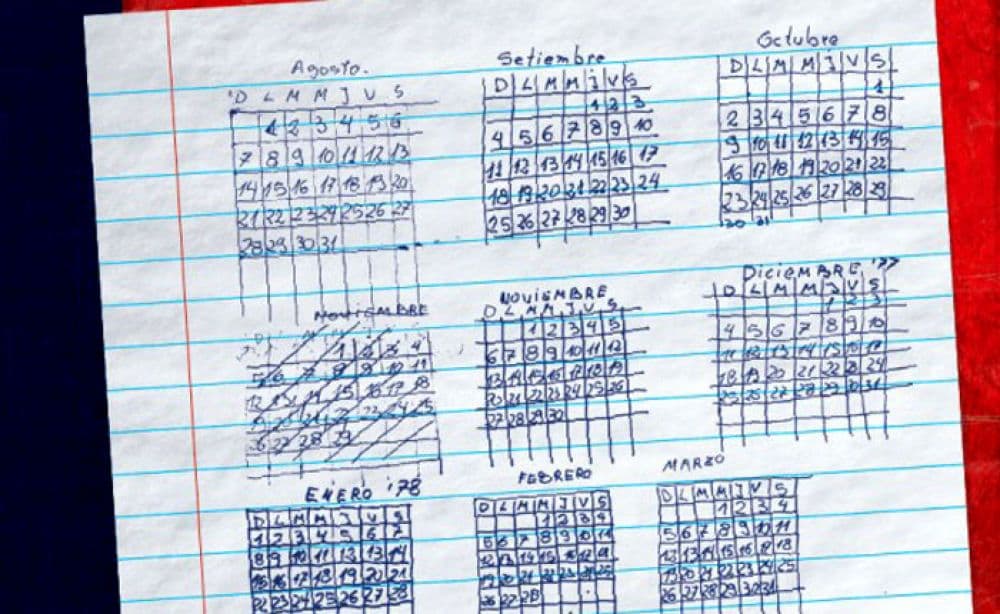 Agosto.
D L M M J V S
1 2 3 4 5 6
7 8 9 10 11 12 13
14 15 16 17 18 19 20
21 22 23 24 25 26 27
28 29 30 31
Setiembre
D L M M J V S
1 2 3
4 5 6 7 8 9 10
11 12 13 14 15 16 17
18 19 20 21 22 23 24
25 26 27 28 29 30
Octubre
D L M M J V S
1
2 3 4 5 6 7 8
9 10 11 12 13 14 15
16 17 18 19 20 21 22
23 24 25 26 27 28 29
30 31
NOVIEMBRE
1 2 3 4
5 6 7 8 9 10 11
12 13 14 15 16 17 18
19 20 21 22 23 24 25
26 27 28 29
NOVIEMBRE
D L M M J V S
1 2 3 4 5
6 7 8 9 10 11 12
13 14 15 16 17 18 19
20 21 22 23 24 25 26
27 28 29 30
DICIEMBRE '77
D L M M J V S
1 2 3
4 5 6 7 8 9 10
11 12 13 14 15 16 17
18 19 20 21 22 23 24
25 26 27 28 29 30 31
ENERO '78
D L M M J V S
1 2 3 4 5 6 7
8 9 10 11 12 13 14
15 16 17 18 19 20 21
22 23 24 25 26 27 28
FEBRERO
D L M M J V S
1 2 3 4
5 6 7 8 9 10 11
12 13 14 15 16 17 18
19 20 21 22 23 24 25
26 27 28
MARZO
D L M M J V S
1 2 3 4
5 6 7 8 9 10 11
12 13 14 15 16 17 18
19 20 21 22 23 24 25
26 27 28 29 30 31